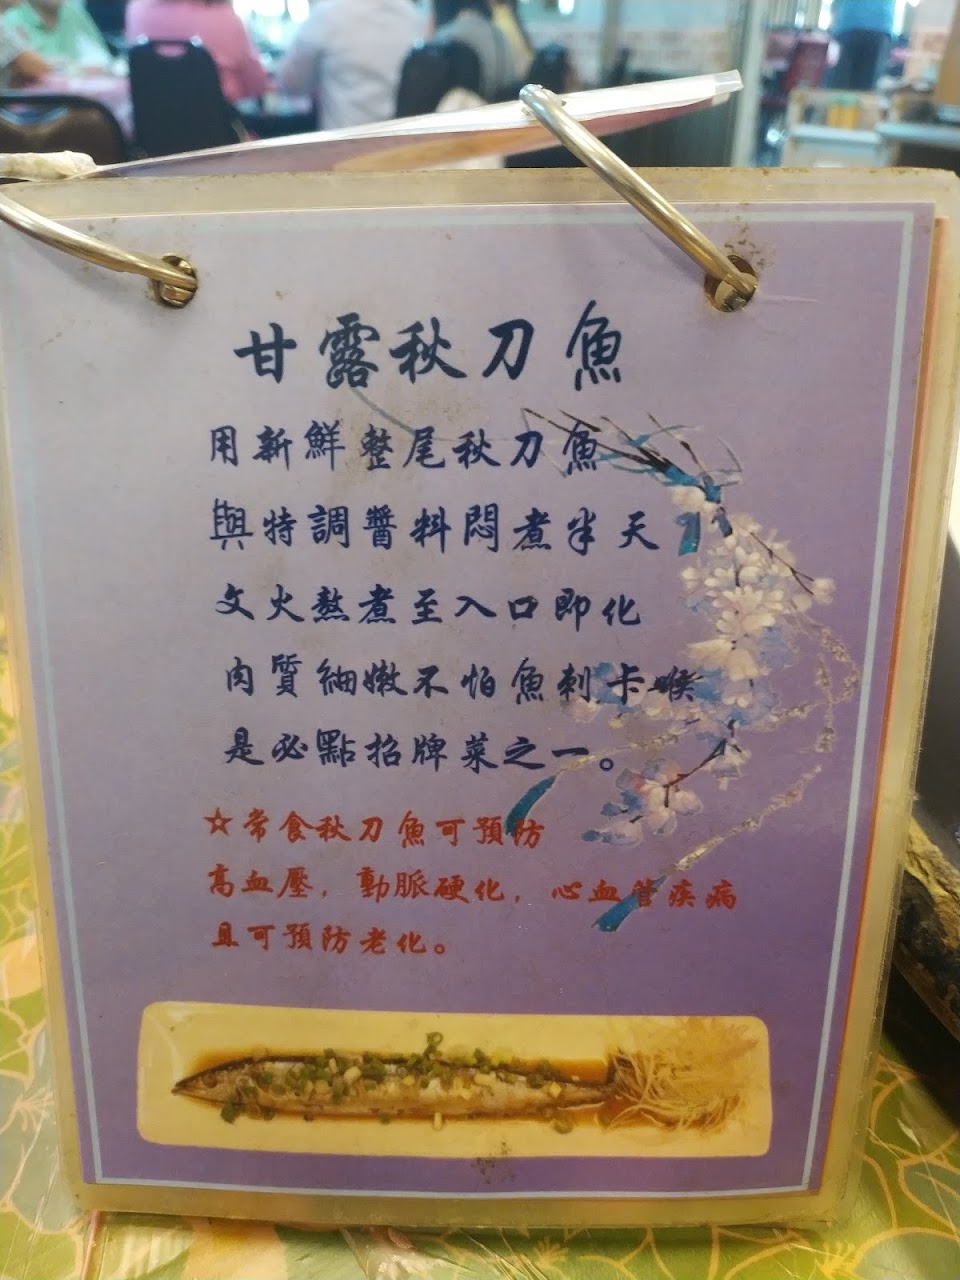 甘露秋刀魚
用新鮮整尾秋刀魚
與特調醬料悶煮半天
文火熬煮至入口即化
肉質細嫩不怕魚刺卡喉
是必點招牌菜之一。
☆常食秋刀魚可預防
高血壓，動脈硬化，心血管疾病
且可預防老化。